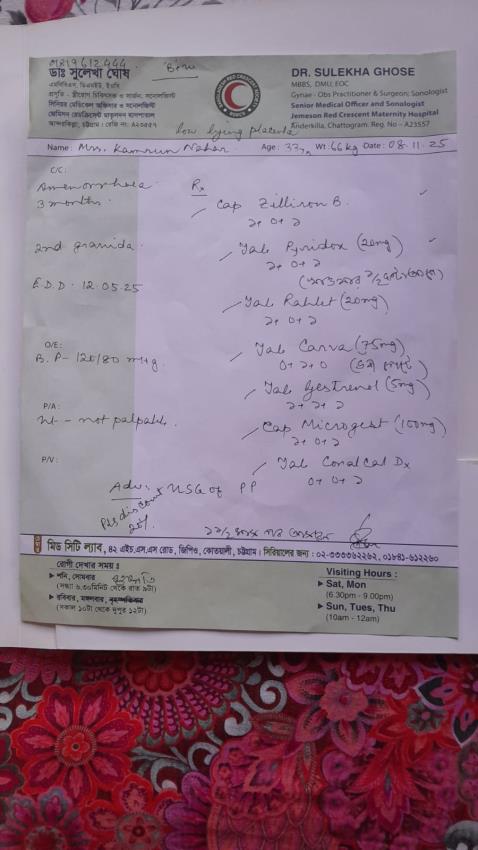 01819612444
ডাঃ সুলেখা ঘোষ
এমবিবিএস, ডিএমইউ, ইওসি
প্রসূতি - স্ত্রীরোগ চিকিৎসক ও সার্জন, সনোলজিস্ট
সিনিয়র মেডিকেল অফিসার ও সনোলজিস্ট
জেমিসন রেডক্রিসেন্ট মাতৃসদন হাসপাতাল
আন্দরকিল্লা, চট্টগ্রাম। রেজি নং- এ২৩৫৫৭
DR. SULEKHA GHOSE
MBBS, DMU, EOC
Gynae - Obs Practitioner & Surgeon; Sonologist
Senior Medical Officer and Sonologist
Jemeson Red Crescent Maternity Hospital
Anderkilla, Chattogram. Reg. No - A23557
low lying placenta
Name: Mrs. Kamrun Nahar. Age: 33y Wt: 66 kg Date: 08.11.25
C/C:
Amenorrhoea.
3 months.
2nd gravida.
E.D.D. 12.05.25
O/E:
B.P- 120/80 mmHg.
P/A:
Ut - not palpable.
P/V:
Rx
Cap Zilliron B.
১+ ০+ ১
Tab Pyridox (20mg)
১+ ০+ ১
Tab Rablet (20mg)
১+ ০+ ১
Tab Carva (75mg)
০+ ১+ ০
Tab Gestrenol (5mg)
১+ ১+ ১
Cap Microgest (100mg)
১+ ০+ ১
Tab Coralcal Dx
০+ ০+ ১
Adv: USG of PP
Pls discount
20%.
মিড সিটি ল্যাব, ৪২ এইচ.এস.এস রোড, জিপিও, কোতয়ালী, চট্টগ্রাম। সিরিয়ালের জন্য : ০২-৩৩৩৩৬২২৬২, ০১৮৪১-৬১২২৬০
রোগী দেখার সময় ঃ
শনি, সোমবার
(সন্ধ্যা ৬.৩০মিনিট থেকে রাত ৯টা)
রবিবার, মঙ্গলবার, বৃহস্পতিবার
(সকাল ১০টা থেকে দুপুর ১২টা)
Visiting Hours :
Sat, Mon
(6.30pm - 9.00pm)
Sun, Tues, Thu
(10am - 12am)